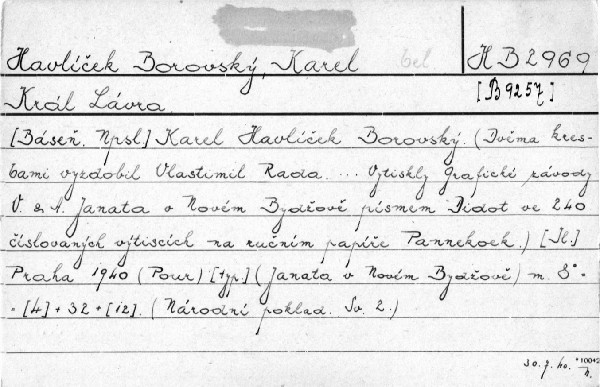 Havlíček Borovský, Karel bel. HB2969
Král Lávra [B9257]
[Báseň. Npsl.] Karel Havlíček Borovský. (Dvěma kres-
bami vyzdobil Vlastimil Rada. ... Vytiskly grafické závody
V. & A. Janata v Novém Bydžově písmem Didot ve 240
číslovaných výtiscích na ručním papíře Pannekoek.) [Il.]
Praha 1940 (Pour) [typ.] (Janata v Novém Bydžově) m. 8°
- [4] + 32 + [12]. (Národní poklad. Sv. 2.)
30.7.40. +10042